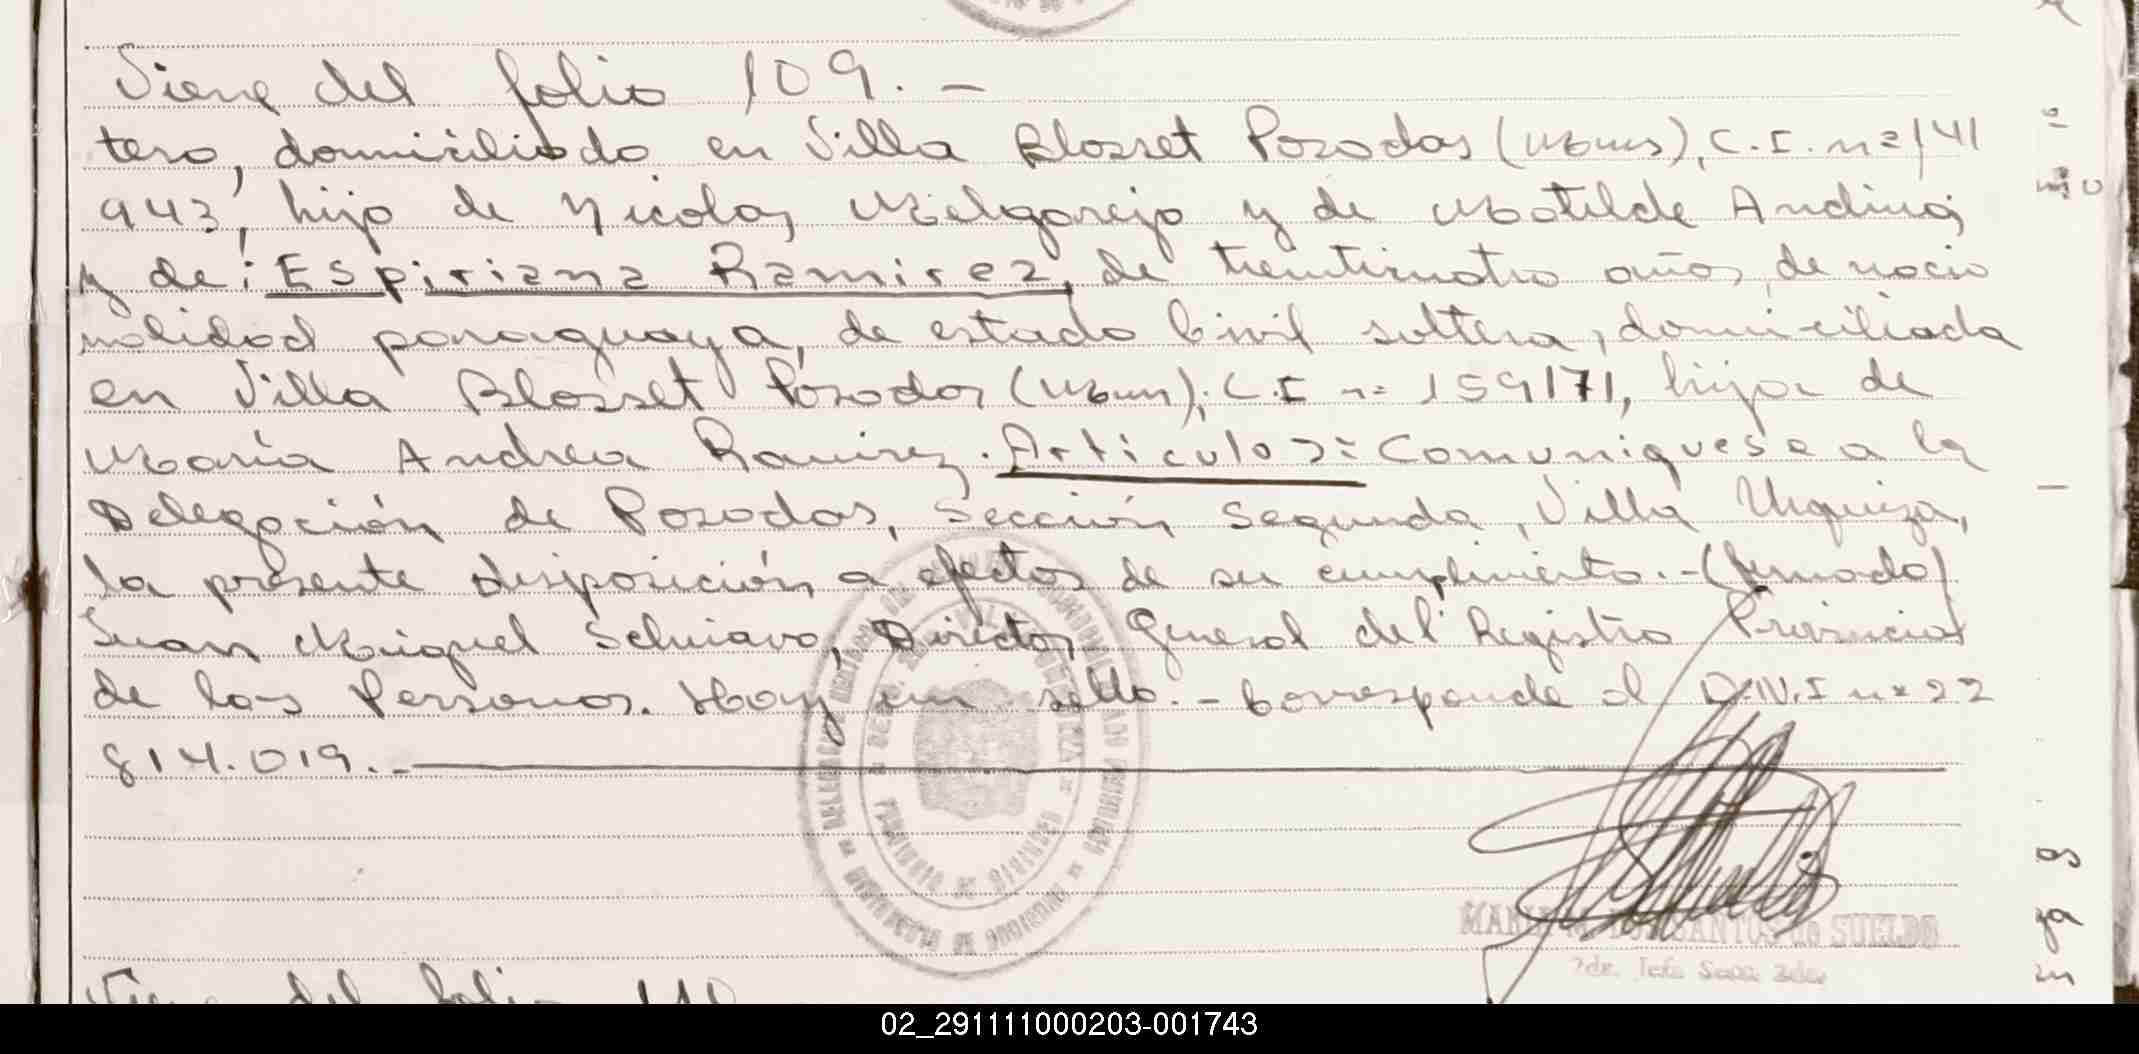 Viene del folio 109.-
tero, domiciliado en Villa Blosset Posadas (Mnes), C.I. nº 141
943, hijo de Nicolas Melgarejo y de Matilde Andino;
y de: Espiriana Ramirez, de treinticuatro años, de nacio
nalidad paraguaya, de estado Civil soltera, domiciliada
en Villa Blosset Posadas (Mnes), C.I nº 159171, hija de
María Andrea Ramirez. Artículo 2º: Comuniquese a la
Delegación de Posadas, Sección Segunda, Villa Urquiza,
la presente disposición a efectos de su cumplimiento.-(firmado)
Juan Miguel Schiavo, Director General del Registro Provincial
de las Personas. Hay un sello.- Corresponde al D.N.I nº 22
814.019.-
SANTOS de SUELDO
Viene del folio 110
02_291111000203-001743